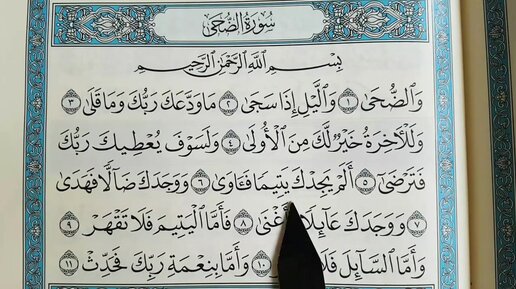 سُورَةُ الضُّحَىٰ
بِسْمِ اللَّهِ الرَّحْمَٰنِ الرَّحِيمِ
وَالضُّحَىٰ ١ وَاللَّيْلِ إِذَا سَجَىٰ ٢ مَا وَدَّعَكَ رَبُّكَ وَمَا قَلَىٰ ٣
وَلَلْآخِرَةُ خَيْرٌ لَّكَ مِنَ الْأُولَىٰ ٤ وَلَسَوْفَ يُعْطِيكَ رَبُّكَ
فَتَرْضَىٰ ٥ أَلَمْ يَجِدْكَ يَتِيمًا فَآوَىٰ ٦ وَوَجَدَكَ ضَالًّا فَهَدَىٰ
٧ وَوَجَدَكَ عَائِلًا أَغْنَىٰ ٨ فَأَمَّا الْيَتِيمَ فَلَا تَقْهَرْ ٩
وَأَمَّا السَّائِلَ فَلَا ١٠ وَأَمَّا بِنِعْمَةِ رَبِّكَ فَحَدِّثْ ١١